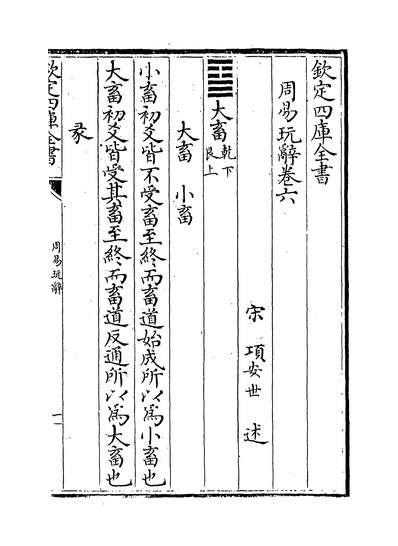 欽定四庫全書
周易玩辭卷六
宋 項安世 述
大畜 乾下艮上
大畜 小畜
小畜初爻皆不受畜至終而畜道始成所以為小畜也
大畜初爻皆受其畜至終而畜道反通所以為大畜也
彖
欽定四庫全書
周易玩辭
一